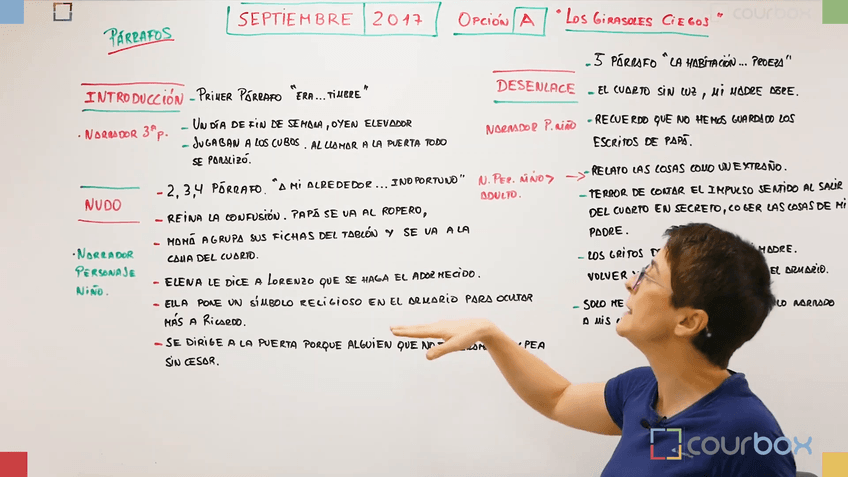 courbox
SEPTIEMBRE 2017 OPCIÓN A "LOS GIRASOLES CIEGOS"
PÁRRAFOS
INTRODUCCIÓN - PRIMER PÁRRAFO "ERA...TIMBRE"
· NARRADOR 3ª p.
- UN DÍA DE FIN DE SEMANA, OYEN ELEVADOR
- JUGABAN A LOS CUBOS. AL LLAMAR A LA PUERTA TODO
SE PARALIZÓ.
NUDO
- 2, 3, 4 PÁRRAFO. "A MI ALREDEDOR...INOPORTUNO"
- REINA LA CONFUSIÓN. PAPÁ SE VA AL ROPERO,
· NARRADOR
PERSONAJE
NIÑO.
- MAMÁ AGRUPA SUS FICHAS DEL TABLÓN Y SE VA A LA
CAMA DEL CUARTO.
- ELENA LE DICE A LORENZO QUE SE HAGA EL ADORMECIDO.
- ELLA PONE UN SÍMBOLO RELIGIOSO EN EL ARMARIO PARA OCULTAR
MÁS A RICARDO.
- SE DIRIGE A LA PUERTA PORQUE ALGUIEN QUE NO PEA
SIN CESAR.
DESENLACE
- 5 PÁRRAFO "LA HABITACIÓN... PROEZA"
- EL CUARTO SIN LUZ, MI MADRE ABRE.
NARRADOR P. NIÑO
- RECUERDO QUE NO HEMOS GUARDADO LOS
ESCRITOS DE PAPÁ.
N. PER. NIÑO >
ADULTO.
- RELATO LAS COSAS COMO UN EXTRAÑO.
- TERROR DE CONTAR EL IMPULSO SENTIDO AL SALIR
DEL CUARTO EN SECRETO, COGER LAS COSAS DE MI
PADRE.
- LOS GRITOS MADRE.
VOLVER EL ARMARIO.
- SOLO NARRADO
A MIS
courbox